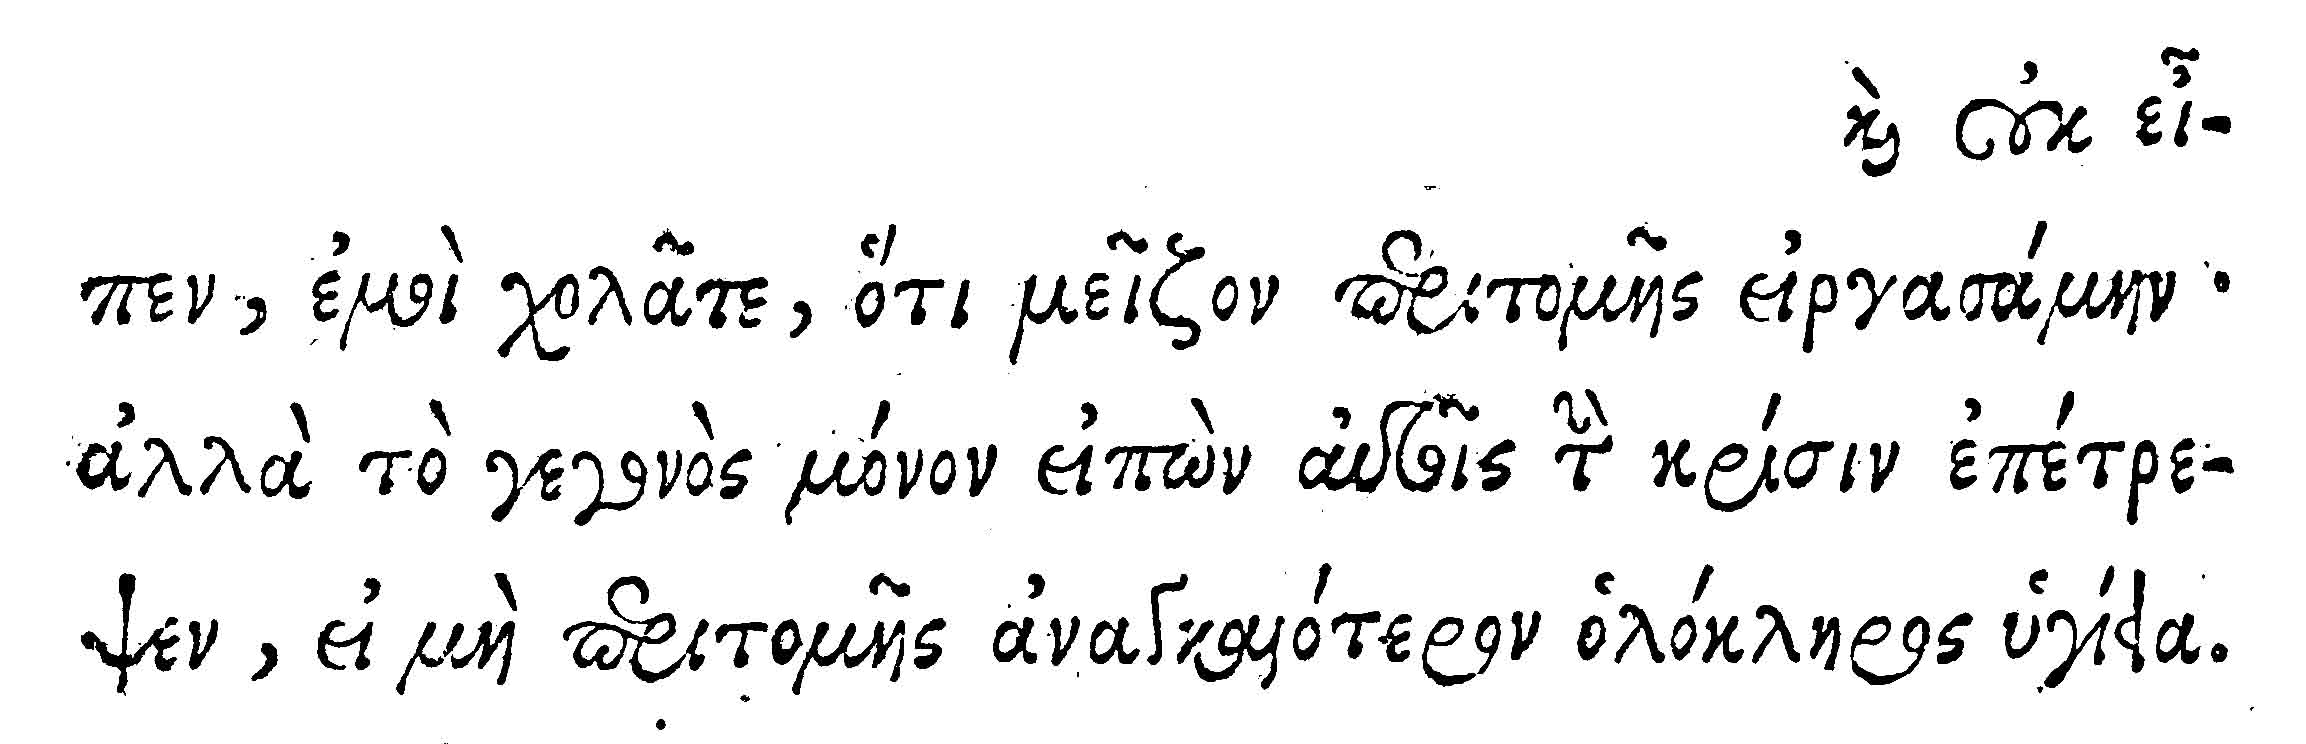 καὶ οὐκ εἶ-
πεν, ἐμοὶ χολᾶτε, ὅτι μεῖζον περιτομῆς εἰργασάμην·
ἀλλὰ τὸ γεγονὸς μόνον εἰπὼν αὐτοῖς τὴν κρίσιν ἐπέτρε-
ψεν, εἰ μὴ περιτομῆς ἀναγκαιότερον ὁλόκληρος ὑγίεια.